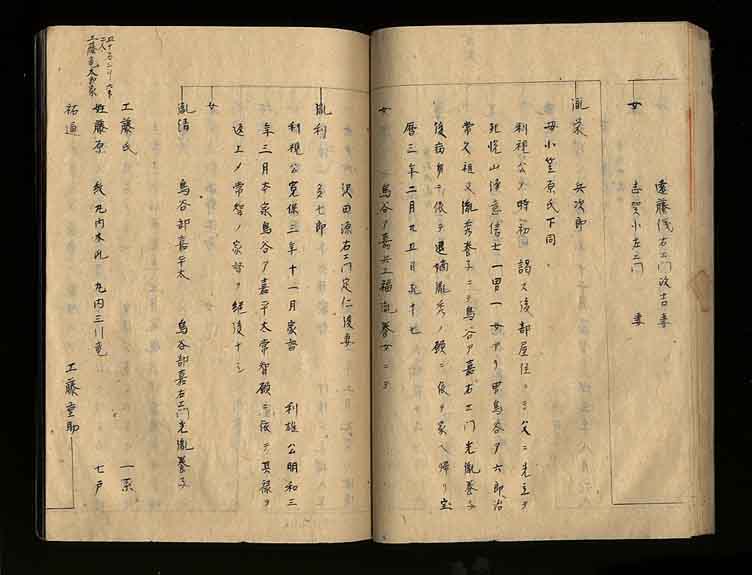 遠藤儀右エ門政吉妻
女　志賀小左エ門妻
胤榮　兵次郎
母小笠原氏下同
利視公ノ時初　謁又後部屋住ニ而父ニ先立テ
死悦山浄意信士一男一女アリ男鳥谷ア六郎治
常久祖父胤秀養子ニ而鳥谷ア嘉右エ門光胤養子
後病身ニ依テ退嫡胤秀ノ願ニ依テ家ヘ帰リ宝
暦三年二月九五日死十七
女　鳥谷ア嘉兵エ福胤養女ニ而
沢田源右エ門定仁後妻
胤利　多七郎
利視公寛保三年十一月家督　利雄公明和三
年三月本家鳥谷ア嘉平太常智願ニ依テ其禄ヲ
返上ノ常智ノ家督ヲ継後十三
女
胤清　鳥谷部嘉平太　鳥谷部嘉右エ門光胤養子
工藤氏　一系
姓藤原　紋丸内木瓜　丸内三川竜　七戸
祐通　工藤重助